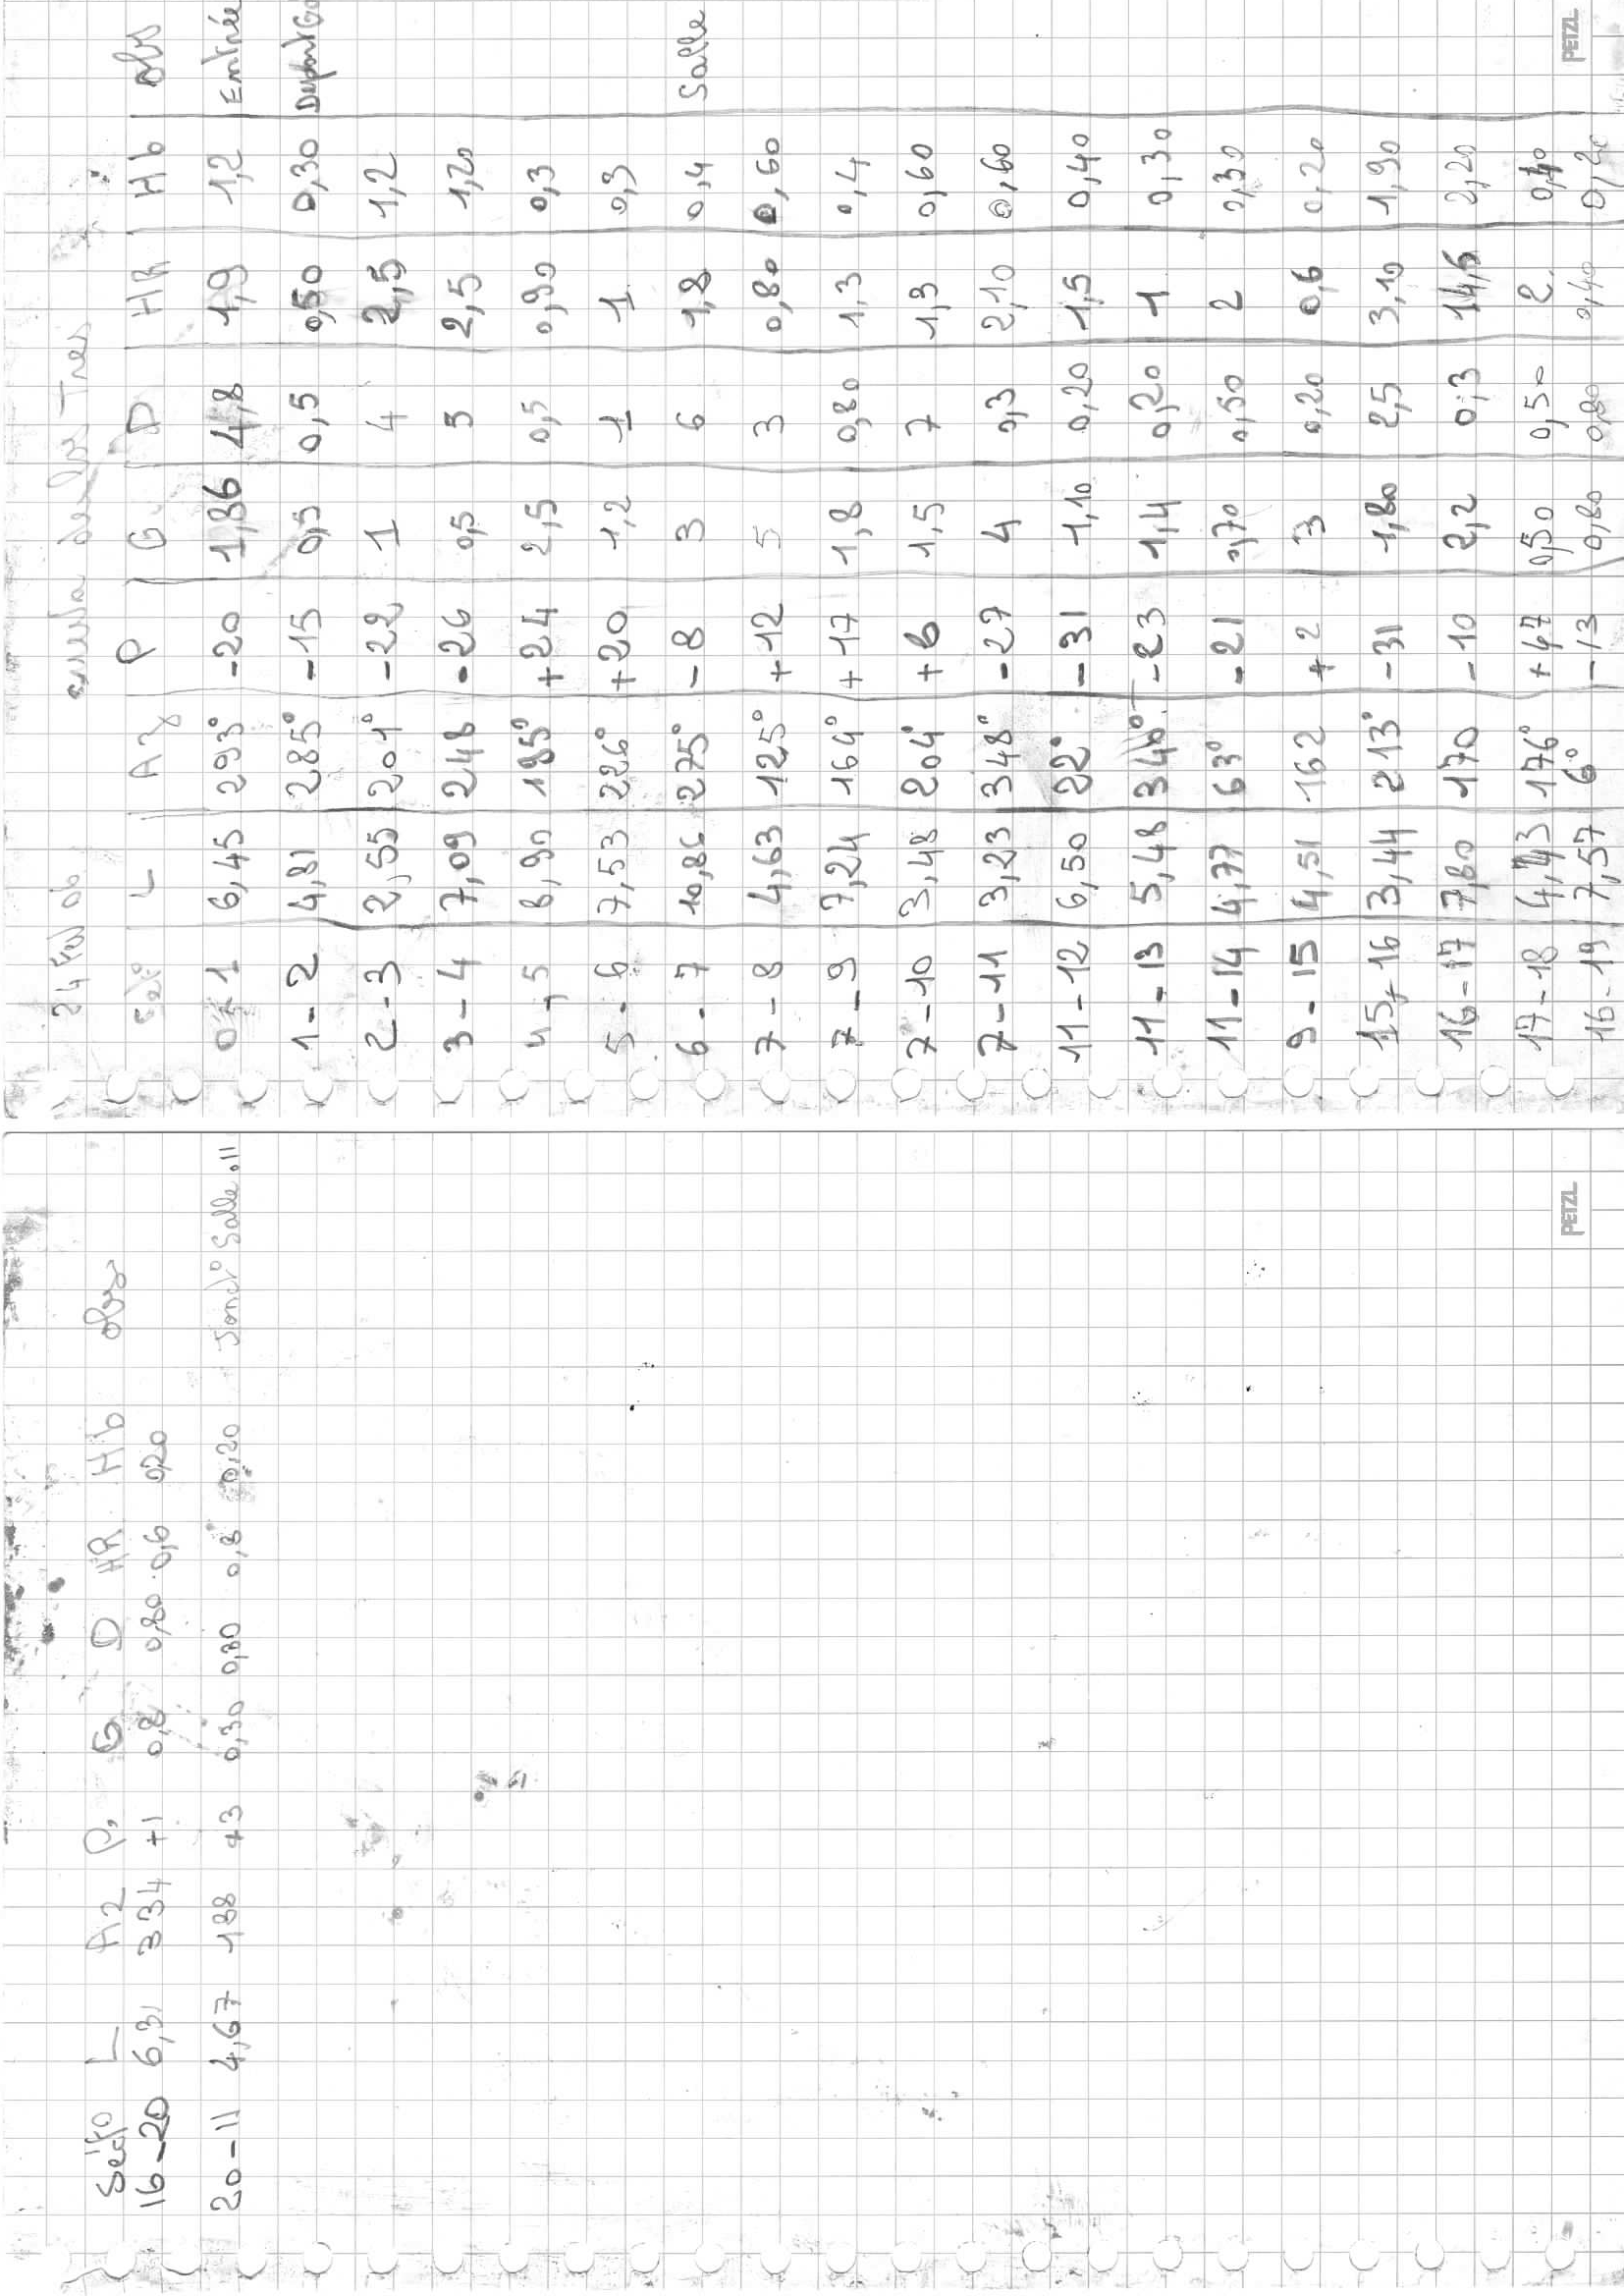 24 Fev 06
L Az P G D HR Hb obs
0-1 6,45 293° -20 1,86 4,8 1,9 1,2 Entrée
1-2 4,81 285° -15 0,5 0,5 0,50 0,30
2-3 2,55 201° -22 1 4 2,5 1,2
3-4 7,09 248 -26 0,5 3 2,5 1,20
4-5 8,90 185° +24 2,5 0,5 0,90 0,3
5-6 7,53 226° +20 1,2 1 1 0,3
6-7 10,86 275° -8 3 6 1,8 0,4 Salle
7-8 4,63 125° +12 5 3 0,80 0,60
7-9 7,24 164° +17 1,8 0,80 1,3 0,4
7-10 3,48 204° +6 1,5 7 1,3 0,60
7-11 3,23 348° -27 4 0,3 2,10 0,60
11-12 6,50 22° -31 1,10 0,20 1,5 0,40
11-13 5,48 340° -23 1,4 0,20 1 0,30
11-14 4,77 63° -21 0,70 0,50 2 0,30
9-15 4,51 162 +2 3 0,20 0,6 0,20
15-16 3,44 213° -31 1,80 2,5 3,10 1,90
16-17 7,80 170 -10 2,2 0,3 14,6 2,20
17-18 4,43 176° +47 0,50 0,50 2 0,40
16-19 7,57 6° -13 0,80 0,80 0,40
PETZL
L Az P. G D HR Hb obs
16-20 6,31 334 +1 0,8 0,80 0,6 0,20
20-11 4,67 188 +3 0,30 0,80 0,8 0,20 Jonct° Salle .11
PETZL